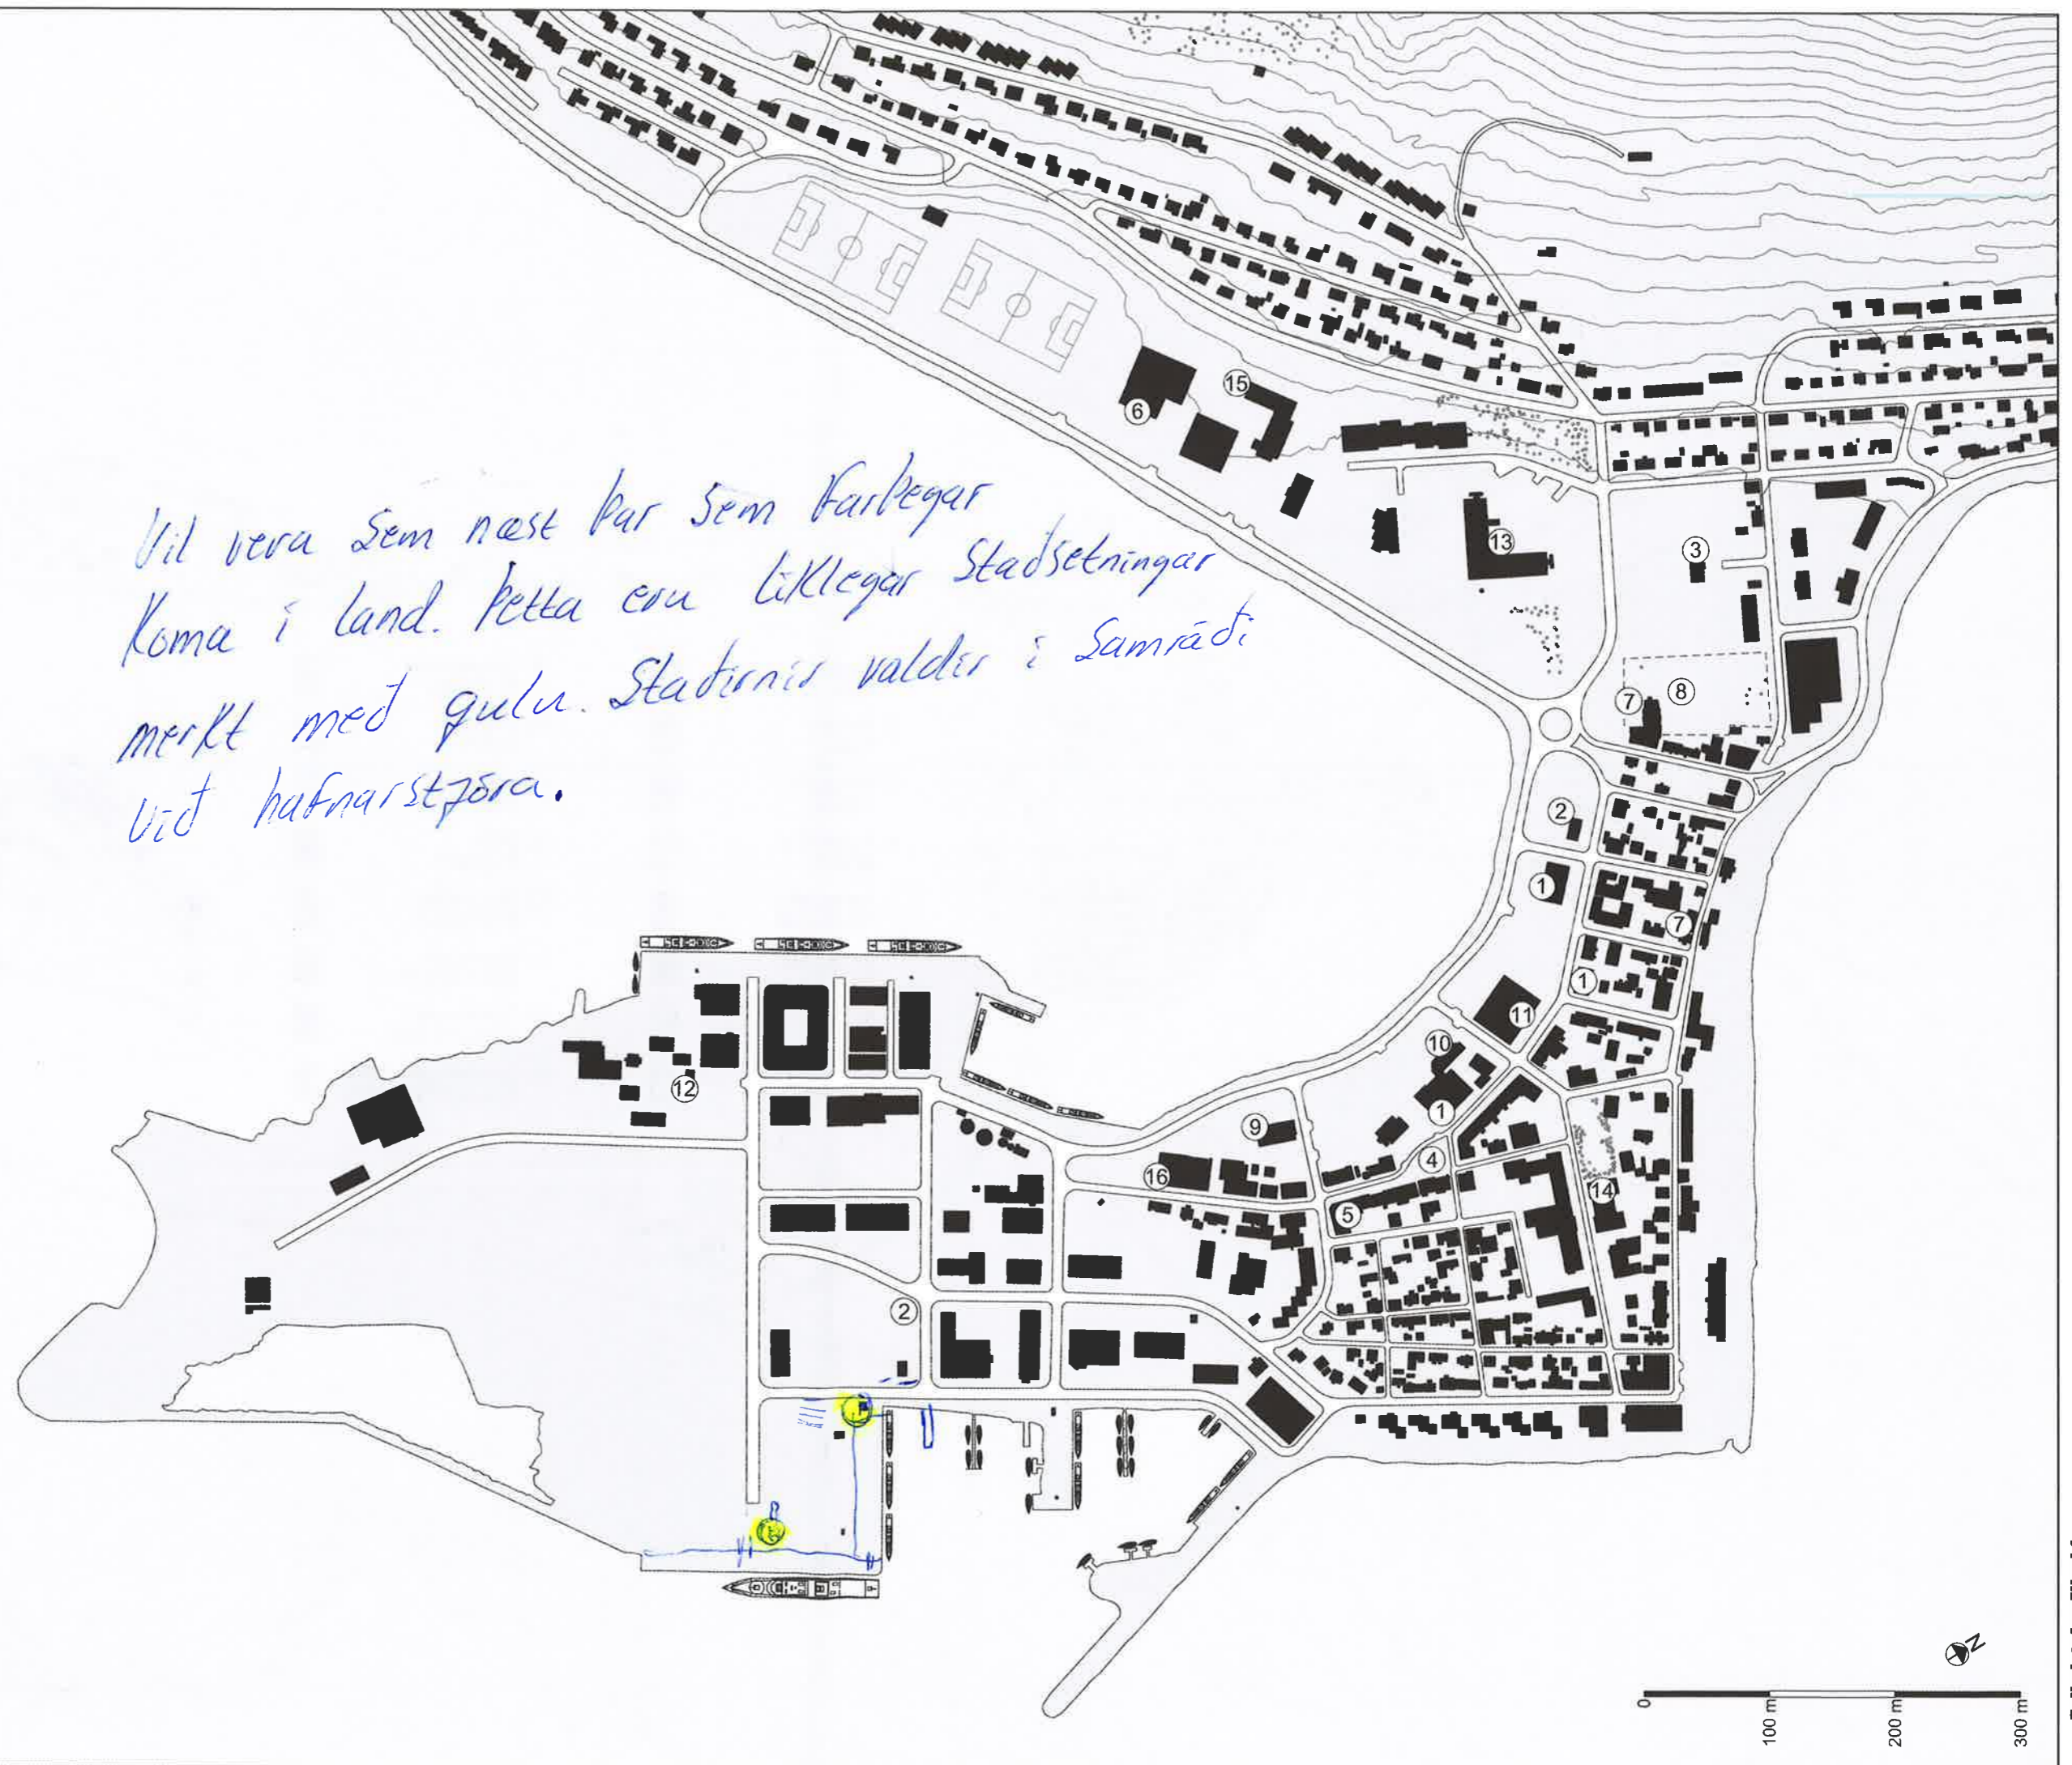 Vil vera sem næst þar sem farþegar
koma í land. Þetta eru líklegar staðsetningar
merkt með gulu. Staðirnir valdir í samráði
við hafnarstjóra.
15
6
13
3
7
8
2
1
7
1
11
10
12
1
9
4
16
14
5
2
N
0
100 m
200 m
300 m